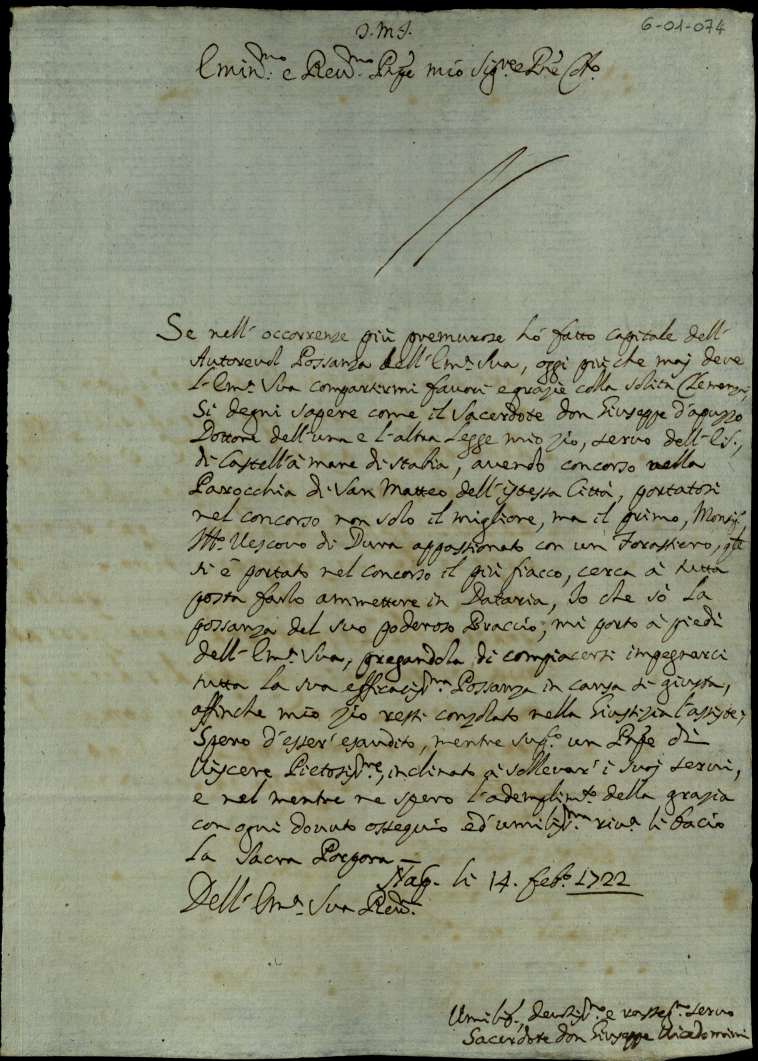 6-01-074
J. M. J.
Emin.mo e Rev.mo Prpe mio Sig.re e Pne Col.mo
Se nell' occorrenze più premurose hò fatto capitale dell'
Autorevol Possanza dell'Em.a Sua, oggi più che maj deve
L'Em.a Sua compartirmi favori e grazie colla solita Clemenza,
Si degni sapere come il Sacerdote don Giuseppe d'apuzzo
Dottore dell'una e l'altra Legge mio zio, servo dell'
di Castell'à mare di stabia, avendo concorso nella
Parrocchia di San Matteo dell'istessa Città, portatosi
nel concorso non solo il migliore, ma il primo, Monsig.
Ill.o Vescovo di Dura appassionato con un Forastiero,
si è portato nel concorso il più fiacco, cerca à tutta
posta farlo ammettere in Dataria, Io che sò la
possanza del suo poderoso Braccio, mi porto à piedi
dell'Em.a Sua, pregandola di compiacersi impegnarci
tutta la sua efficacis.ma Possanza in causa si giusta,
affinche mio zio resti consolato nella Giustizia l'assiste,
Spero d'esser' esaudito, mentre sup.co un Prpe di
viscere Pietosis.me, inclinato à sollevar' i suoj servi,
e nel mentre ne spero l'adempim.to della grazia
con ogni dovuto ossequio ed umilis.ma riv.a li bacio
la Sacra Porpora –
Nap. li 14. feb.o 1722
Dell'Em.a Sua Rev.
Umilis., devotis.mo e osseq.mo servo
Sacerdote don Giuseppe Vicedomini